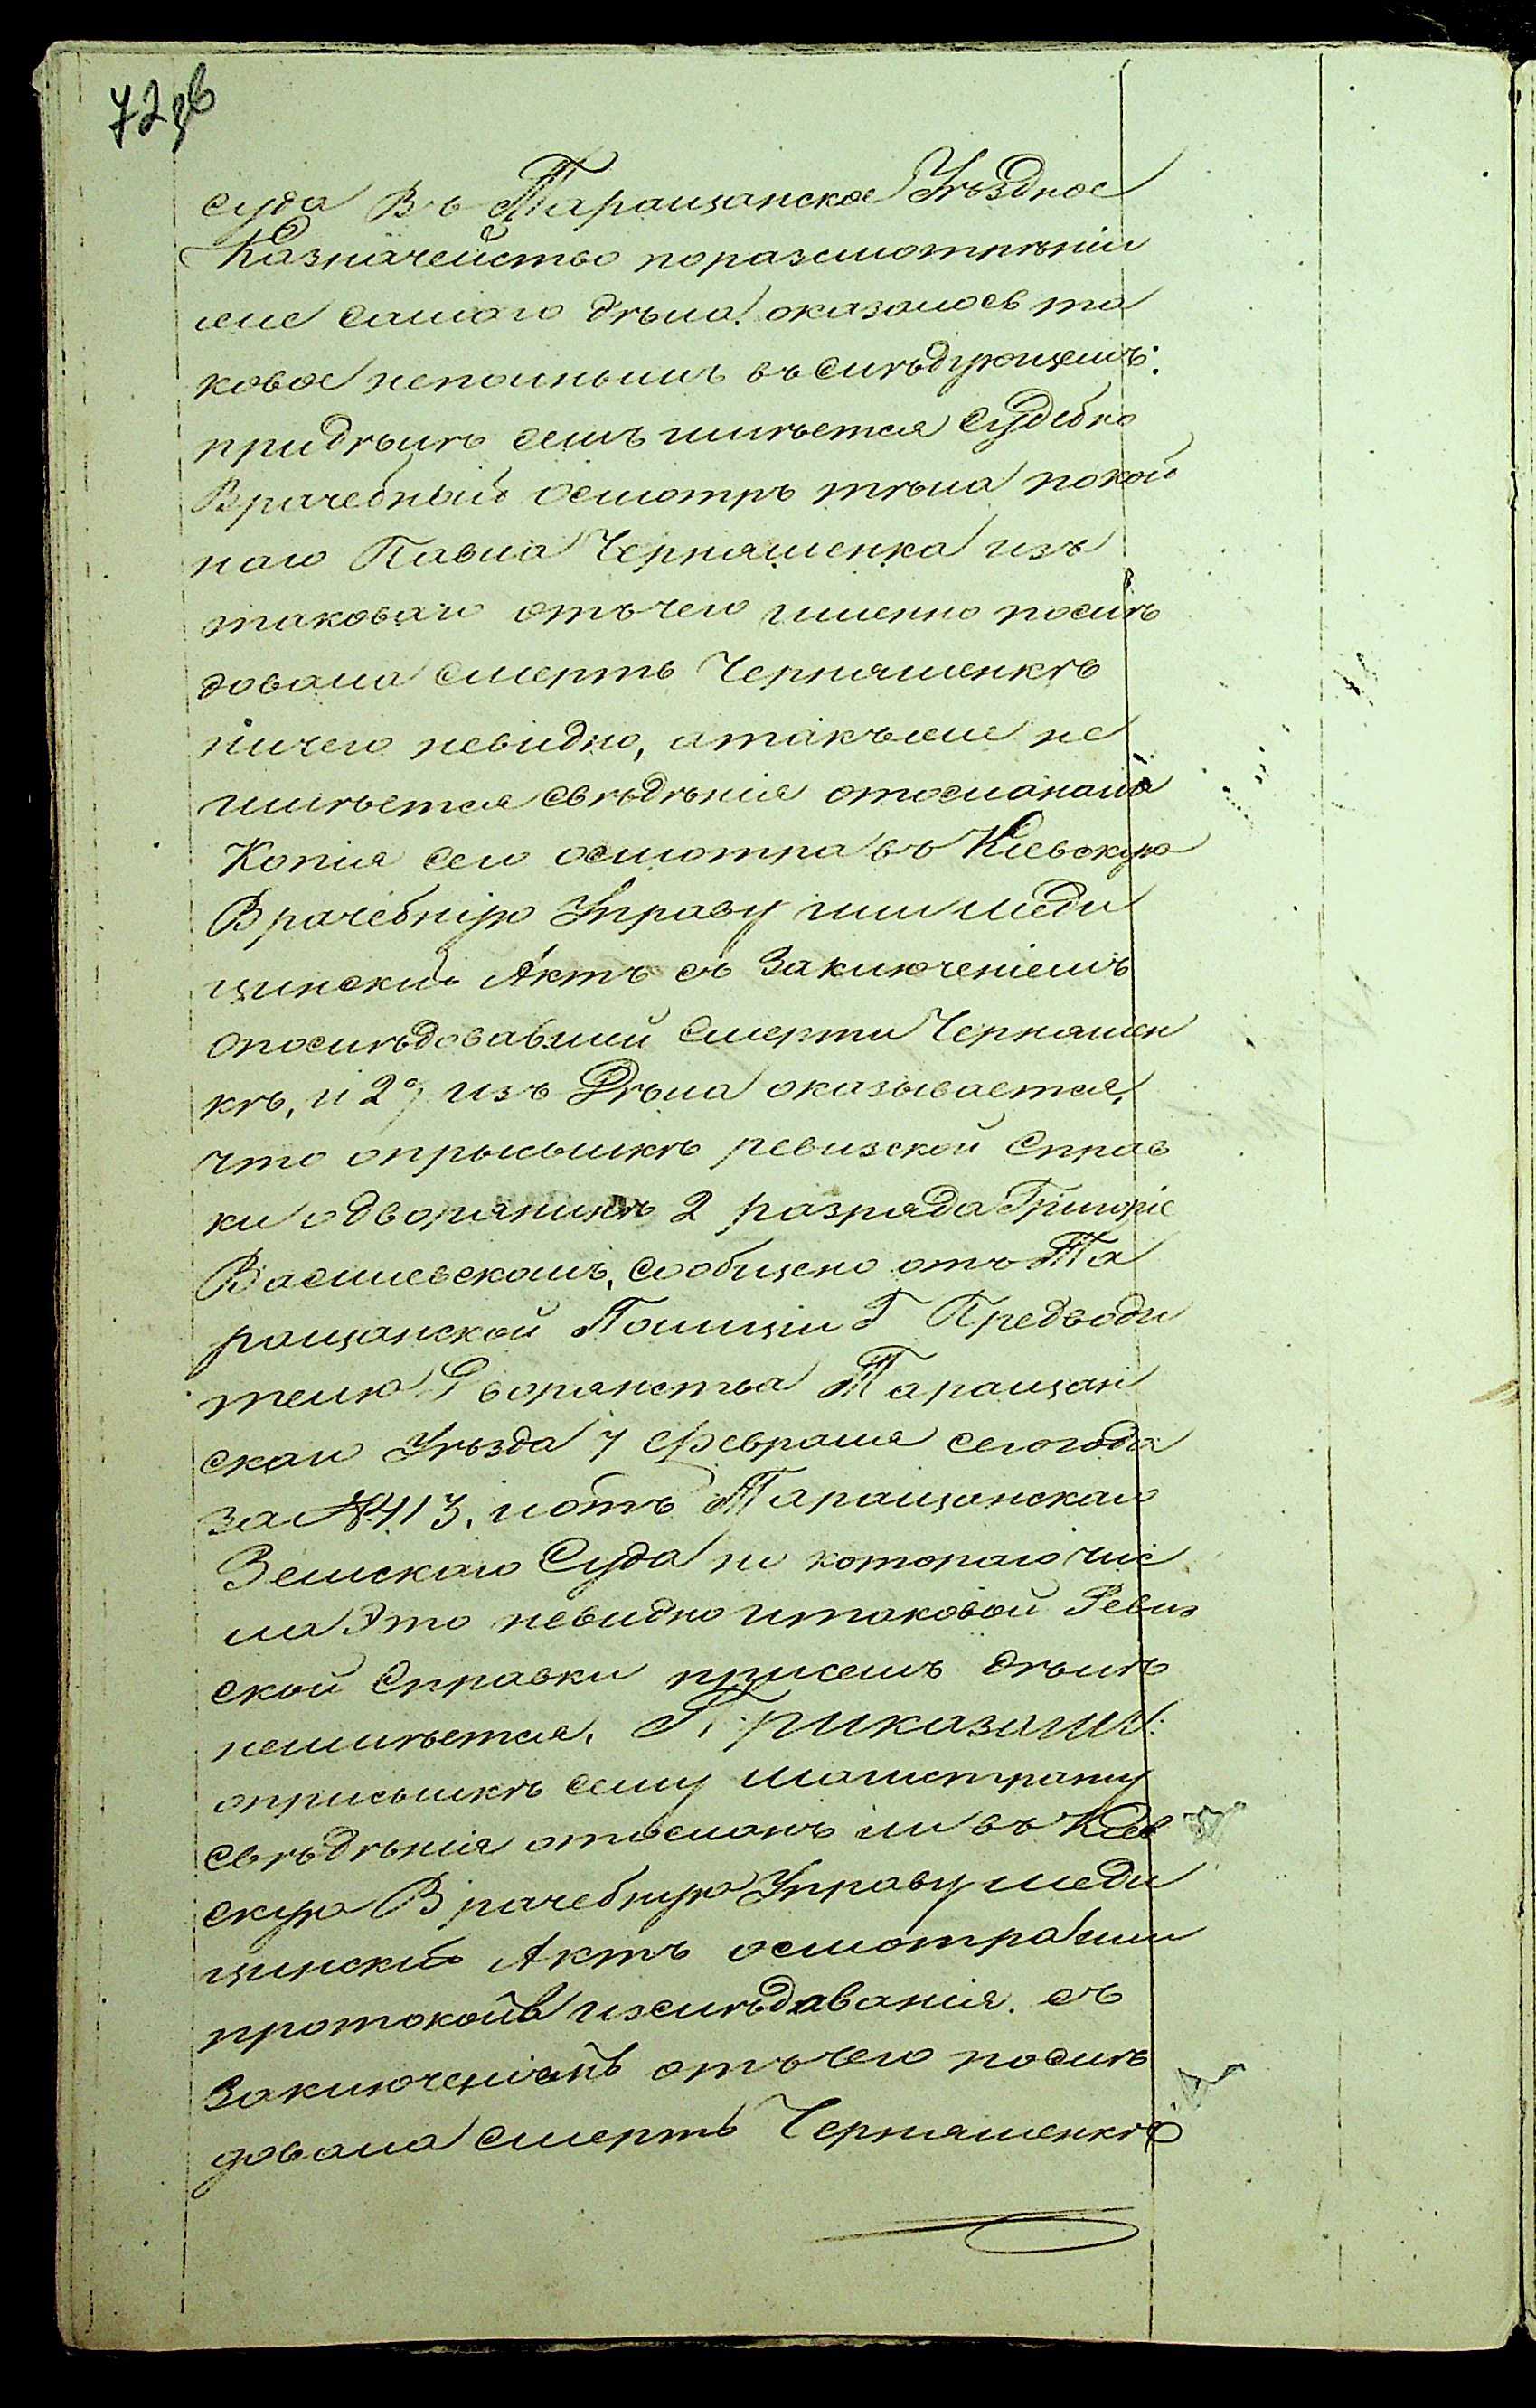 72 зв
суда въ Таращанское Уѣздное
Казначейство поразсмотрѣніи
же самаго дѣла оказалось та
ковое неполнымъ въ слѣдующемъ:
придѣлѣ семъ имѣется Судебно
Врачебный осмотръ тѣла покой
наго Павла Черняшенка изъ
таковаго отъ чего именно послѣ
довала смерть Черняшенкѣ
ничего невидно, а такъже не
имѣется свѣдѣнія отослана ли
Копія сего осмотра во Кіевскую
Врачебную Управу или меди
цинскій Актъ съ Заключеніемъ
опослѣдовавшей смерти Черняшен
кѣ, и 2е/ изъ Дѣла оказывается,
что опрысылкѣ ревизской Справ
ки одворянинѣ 2 разряда Григоріе
Василевскомъ, сообщено отъ Та
ращанской Полиціи Г Предводи
телю Дворянства Таращан
скаго Уѣзда 7 Февраля сегогода
за №413, и отъ Таращанскаго
Земскаго Суда но котораго чис
ла Это невидно и таковой Ревиз
ской Справки присемъ дѣлѣ
неимѣется. Приказали:
оприсылкѣ сему Магистрату
свѣдѣнія отосланъ ли въ Кіев
скую Врачебную Управу меди
цинскій Актъ осмотра или
протоколъ изслѣдаванія. съ
Заключеніемъ отъ чего послѣ
довала смерть Черняшенкѣ